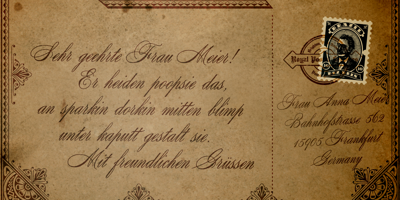 Sehr geehrte Frau Meier!
Er heiden poopsie das,
an sparkin dorkin mitten blimp
unter kaputt gestalt sie.
Mit freundlichen Grüssen
Frau Anna Meier
Bahnhofstrasse 562
15905 Frankfurt
Germany